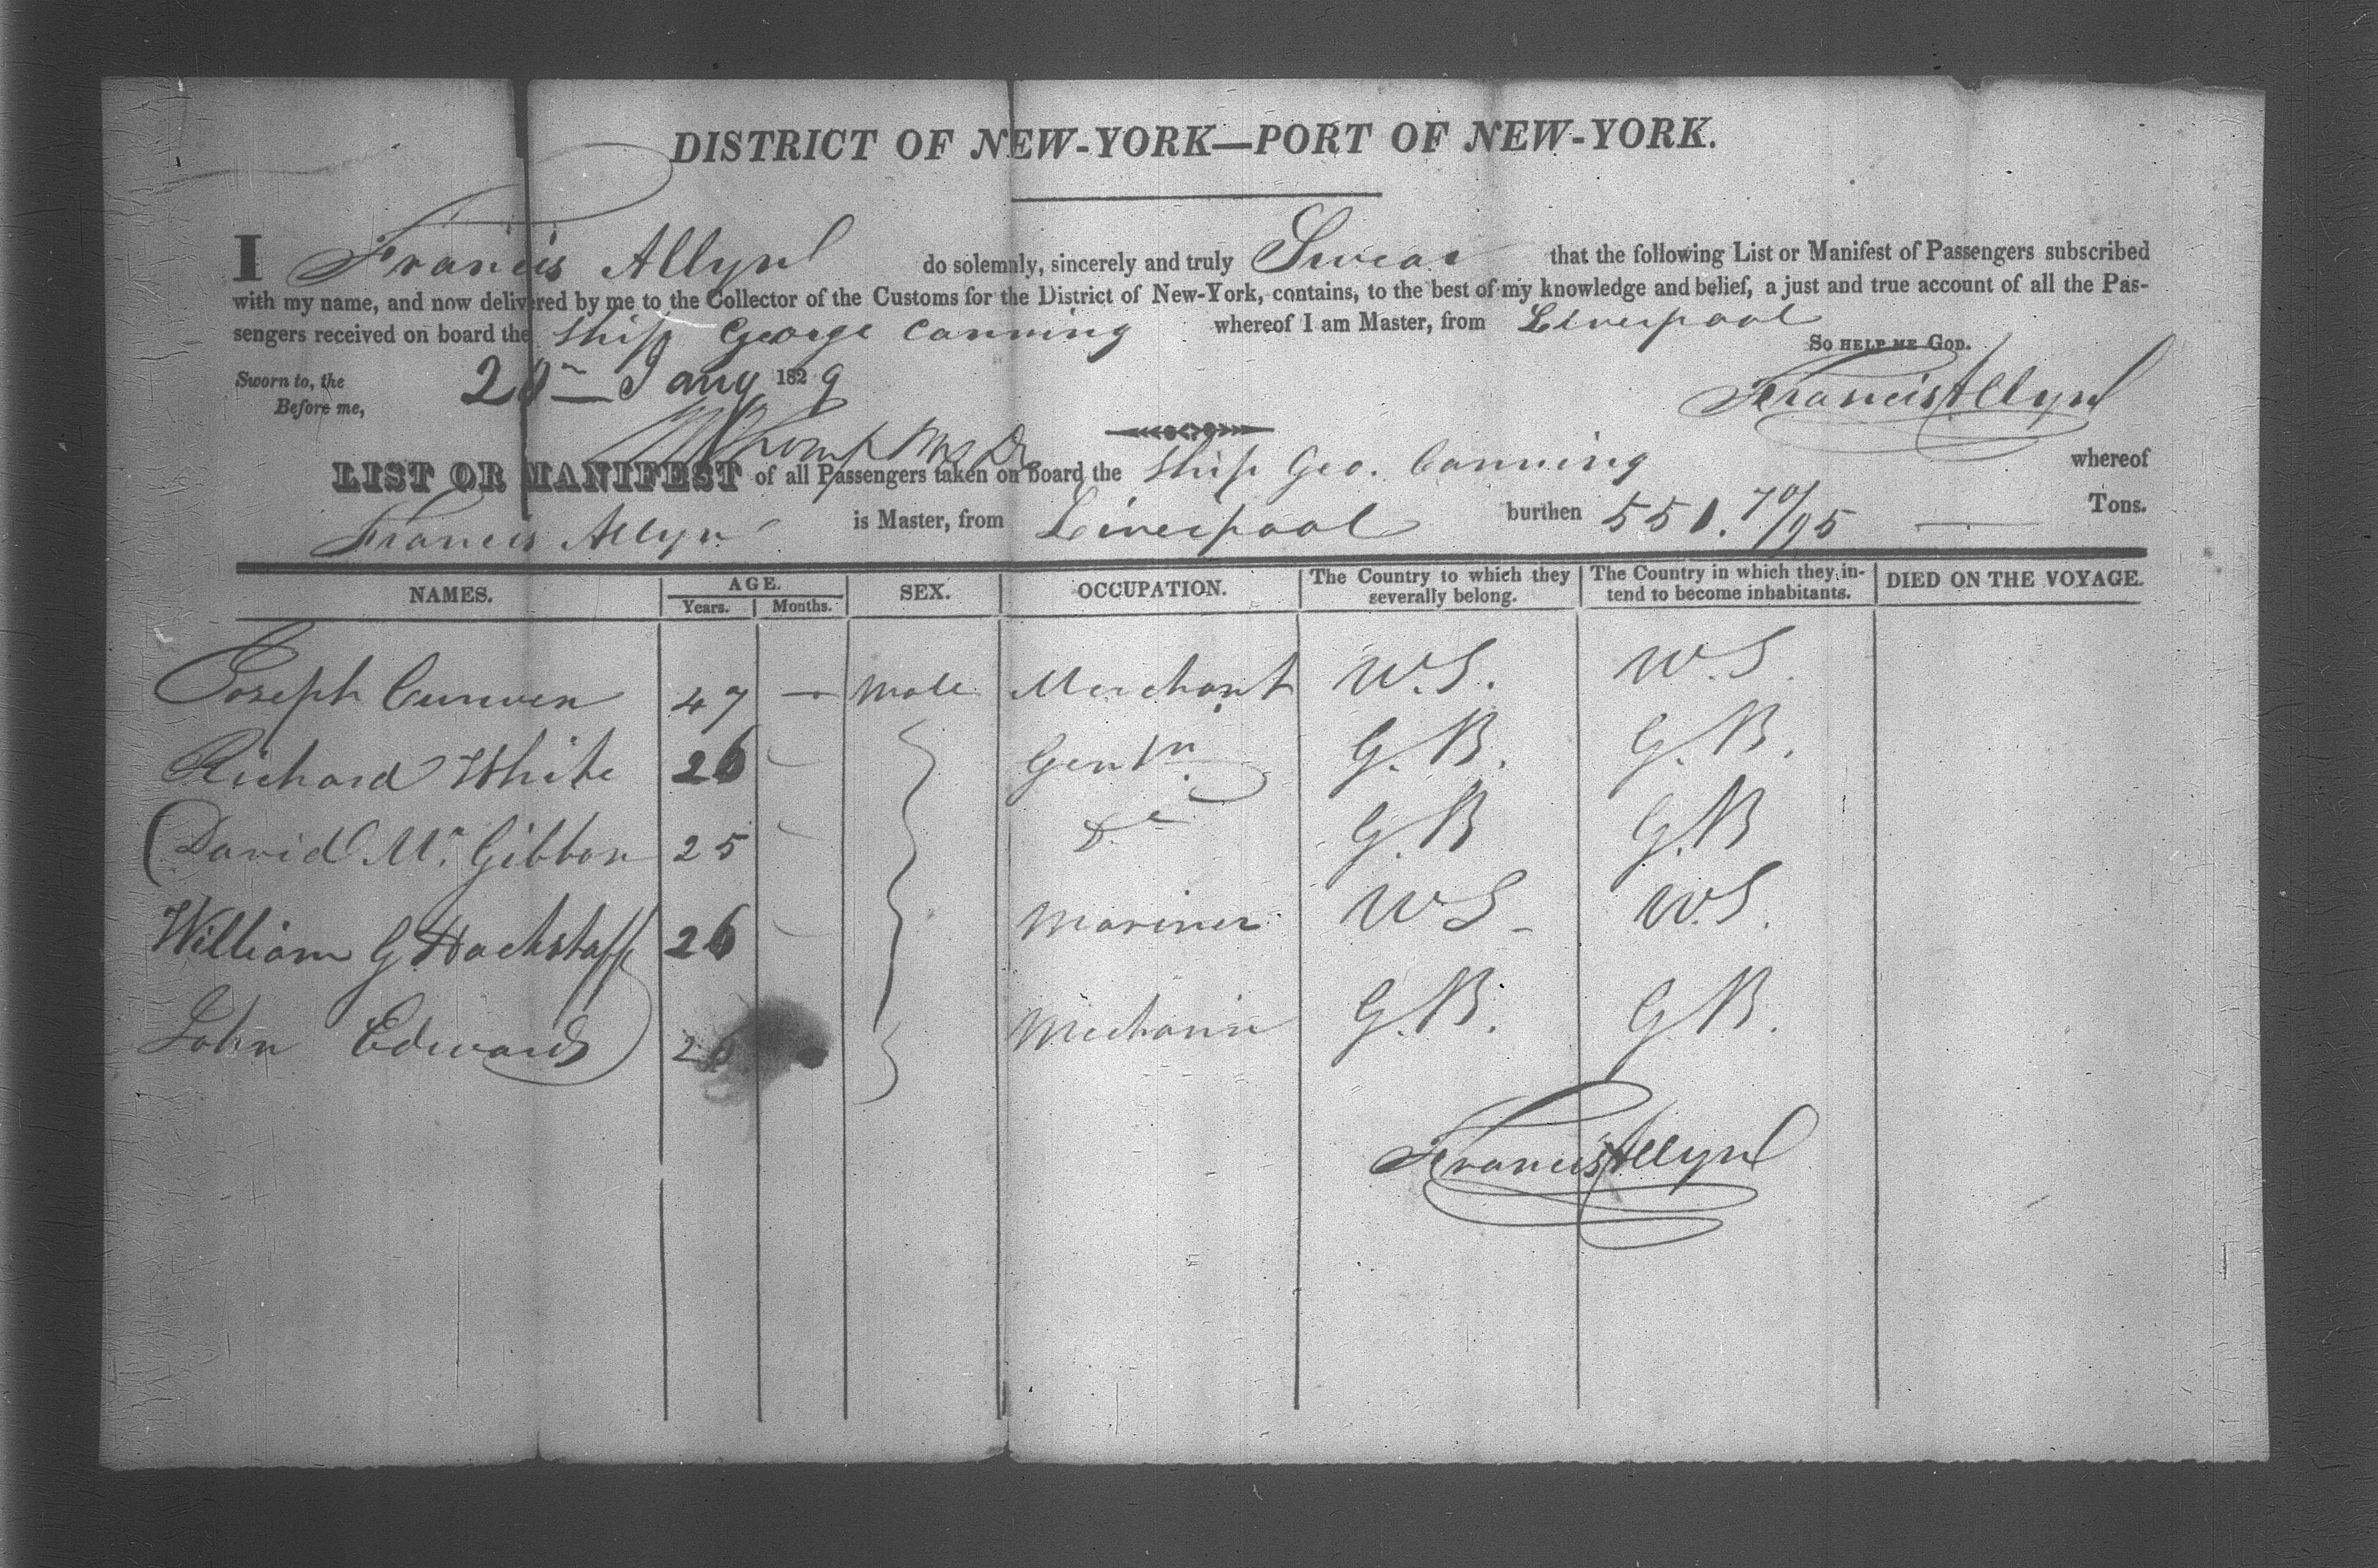 DISTRICT OF NEW-YORK—PORT OF NEW-YORK.
I Francis Allyn do solemnly, sincerely and truly Swear that the following List or Manifest of Passengers subscribed
with my name, and now delivered by me to the Collector of the Customs for the District of New-York, contains, to the best of my knowledge and belief, a just and true account of all the Pas-
sengers received on board the Ship George Canning whereof I am Master, from Liverpool
So HELP ME GOD.
Sworn to, the Jany 1829
Before me,
Francis Allyn
LIST OR MANIFEST of all Passengers taken on board the Ship Geo. Canning whereof
Francis Allyn is Master, from Liverpool burthen 551. 70/95 Tons.
NAMES. AGE. Years. Months. SEX. OCCUPATION. The Country to which they severally belong. The Country in which they intend to become inhabitants. DIED ON THE VOYAGE.
Joseph Curwen 47 — Male Merchant U.S. U.S.
Richard White 26 Gentn. G.B. G.B.
David Mc Gibbon 25 Do G.B G.B
William G Hackstaff 26 Mariner U S U.S.
John Edwards 26 Mechanic G.B. G B.
Francis Allyn